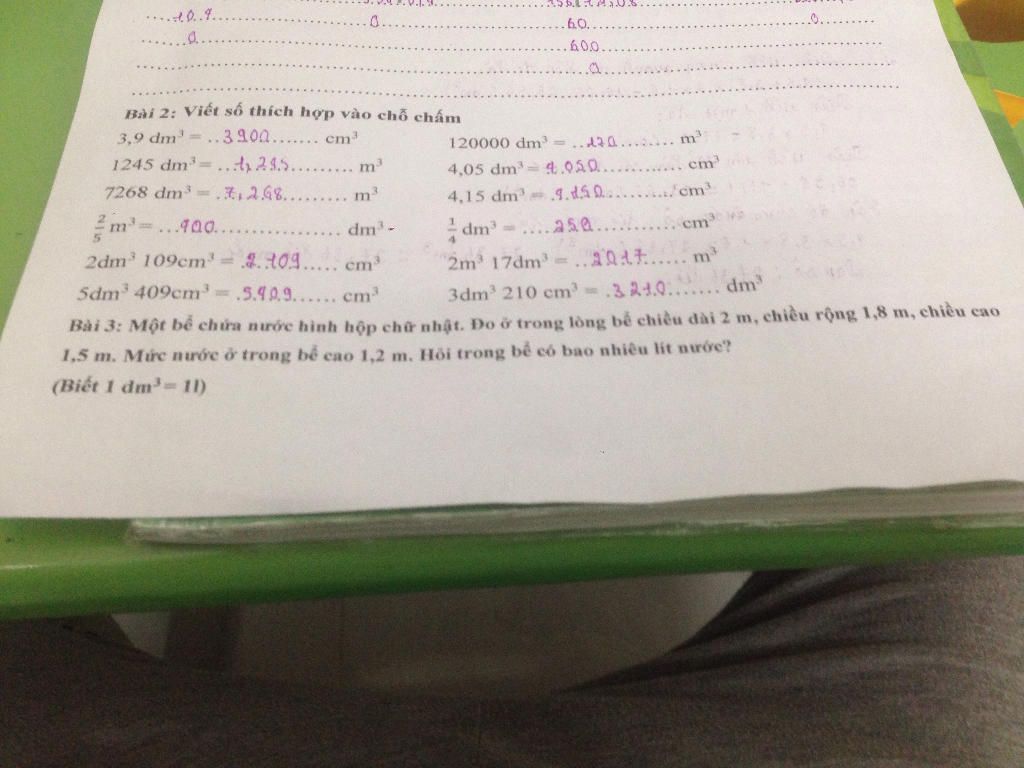 10.9 0 60 0
0 600
0
Bài 2: Viết số thích hợp vào chỗ chấm
3,9 dm³ = ..3900....... cm³ 120000 dm³ = ..120....... m³
1245 dm³= ...1,245.......... m³ 4,05 dm³= 4.050............ cm³
7268 dm³ = .7,268......... m³ 4,15 dm³ = .4.150........... cm³
2/5 m³= ...400.................. dm³ 1/4 dm³ = ....250............ cm³
2dm³ 109cm³ = .2.109..... cm³ 2m³ 17dm³ = ...2017...... m³
5dm³ 409cm³ = .5.409...... cm³ 3dm³ 210 cm³ = .3210....... dm³
Bài 3: Một bể chứa nước hình hộp chữ nhật. Đo ở trong lòng bể chiều dài 2 m, chiều rộng 1,8 m, chiều cao
1,5 m. Mức nước ở trong bể cao 1,2 m. Hỏi trong bể có bao nhiêu lít nước?
(Biết 1 dm³= 1l)